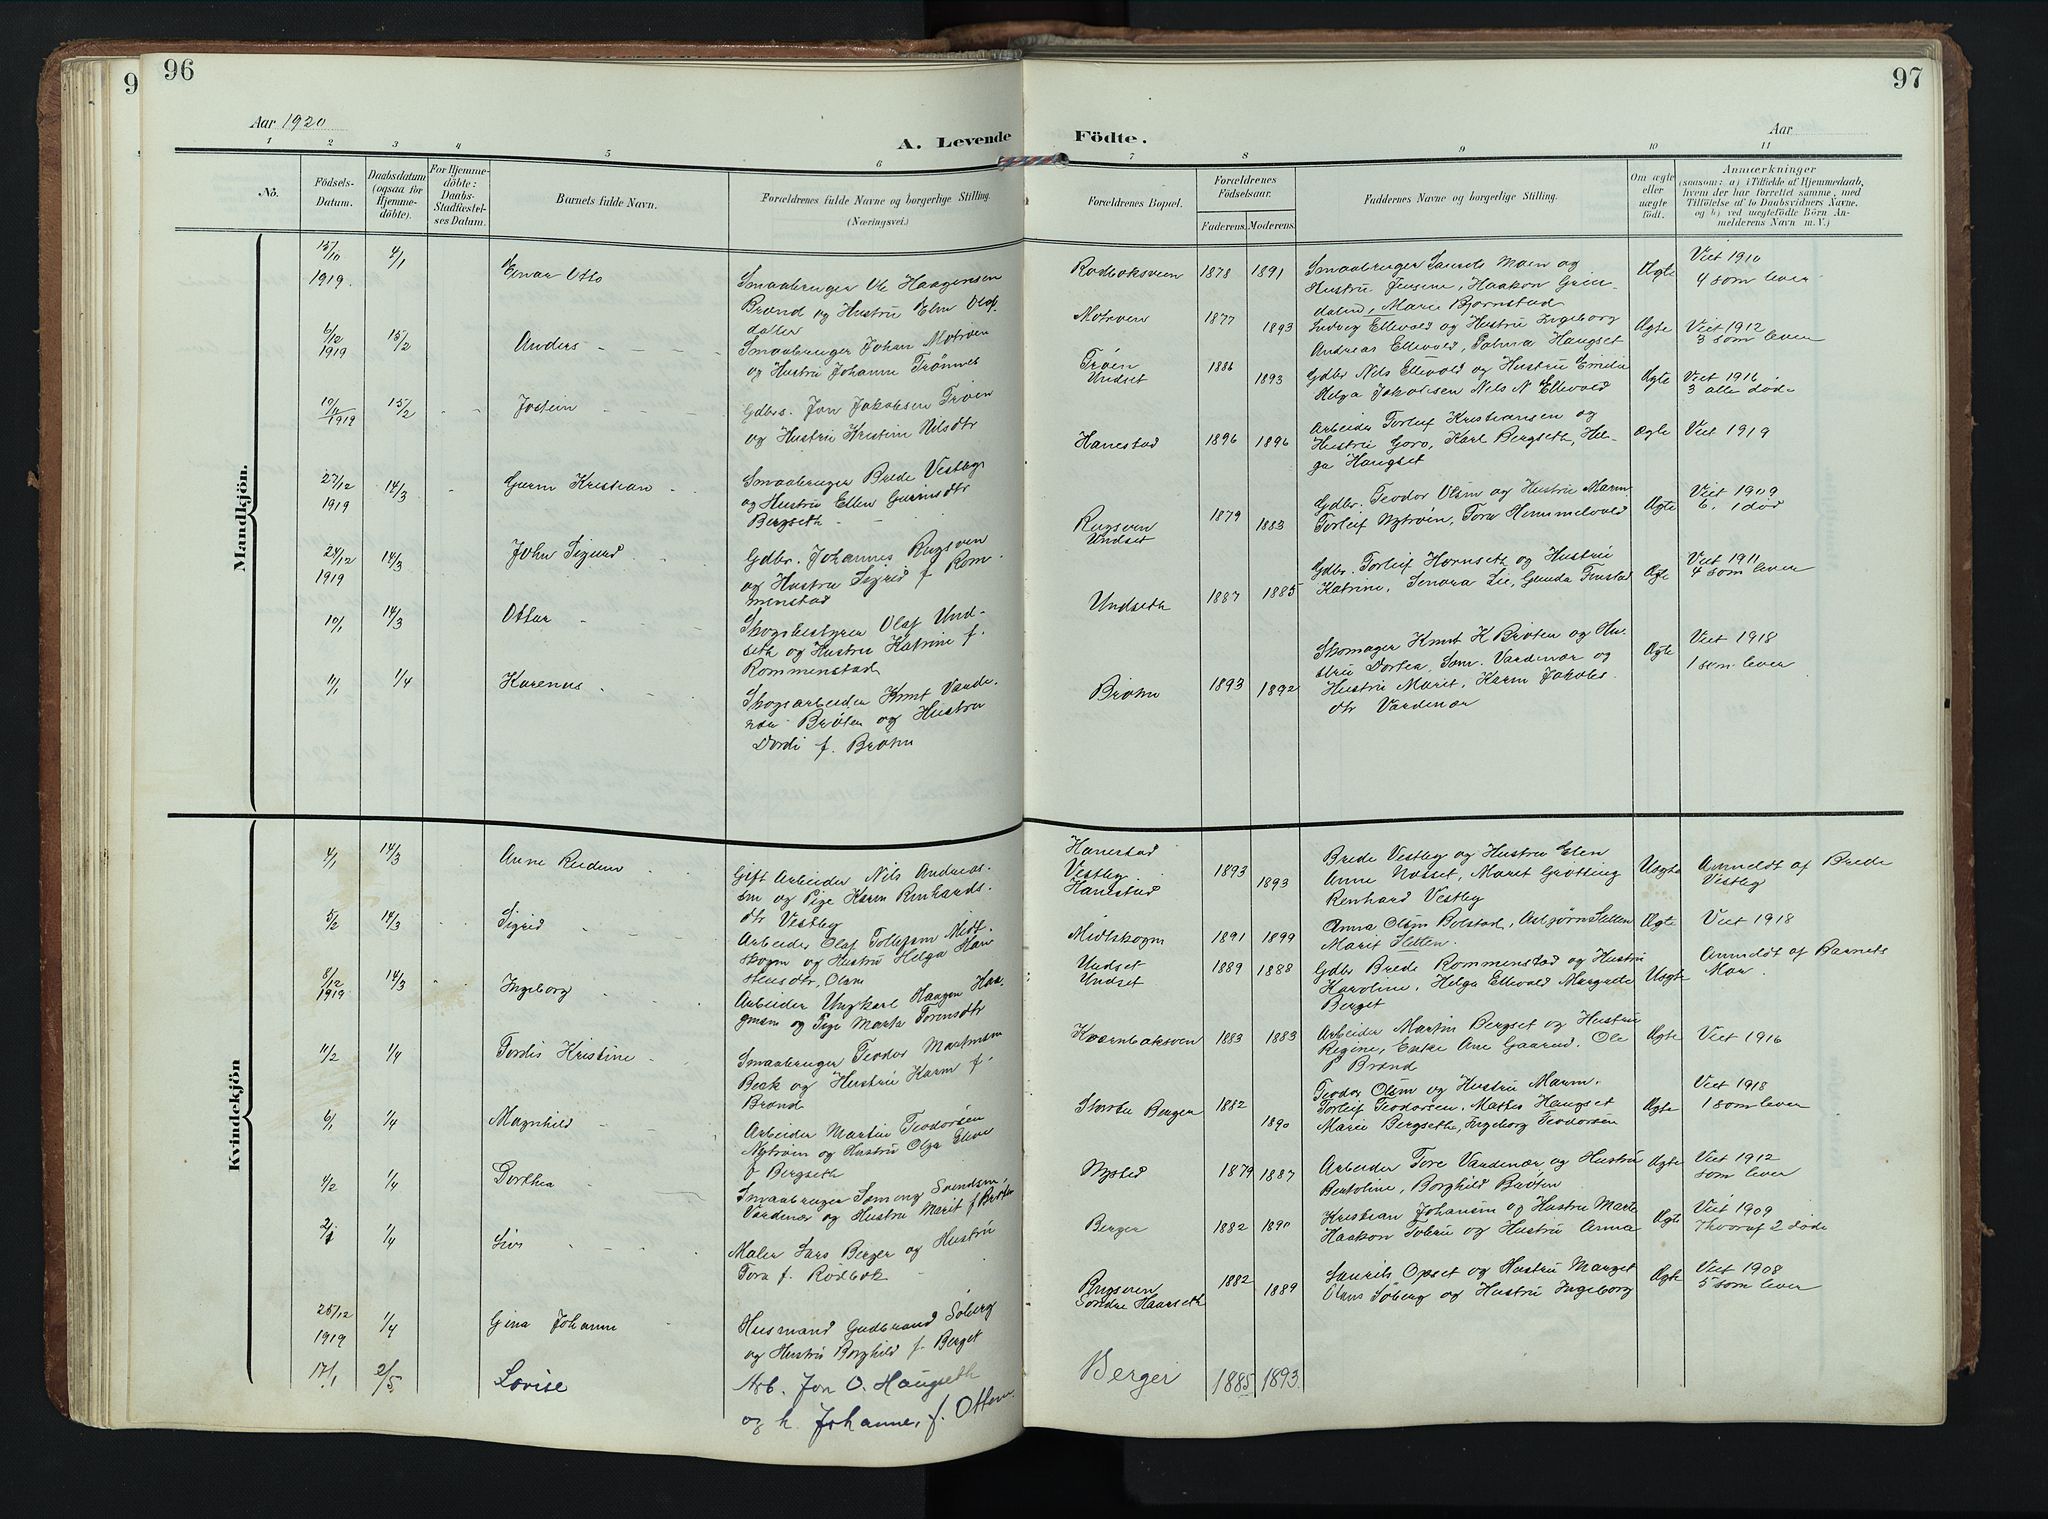 96
Aar 1920
A. Levende
1 2 3 4 5 6
No.
Födsels-
Datum.
Daabsdatum
(ogsaa for
Hjemme-
döbte).
For Hjemme-
döbte:
Daabs-
Stadfæstel-
ses Datum.
Barnets fulde Navn.
Forældrenes fulde Navne og borgerlige Stilling.
(Næringsvei.)
Mandkjön.
15/10 1919. 4/1 Einar Otto
Smaabruger Ole Haagensen
Brænd og Hustru Elen Olaf-
datter
6/12 1919 15/2 Anders
Smaabruger Johan Motrøen
og Hustru Johanne Trønnes
10/11 1919 15/2 Jostein
Gdbrs. Jon Jakobsen Trøen
og Hustru Kristine Nilsdtr
27/12 1919 14/3 Gurm Kristian
Smaabruger Brede Vestby
og Hustru Ellen
Bergseth
24/12 1919 14/3 John Sigurd
Gdbr. Johannes Bugsven
og Hustru Sigrid f. Rom-
menstad
10/1 14/3 Ottar
Skogsbestyrer Olaf Und-
seth og Hustru Katrine f.
Rommenstad
11/1 1/4 Karenus
Skogsarbeider Knut Varde-
nær Brøten og Hustru
Dordi f. Brøten
Kvindekjön
4/1 14/3 Anne Reidun
Gift Arbeider Nils Andreas-
sen og Pige Karen Renhards-
dtr Vestby
5/2 14/3 Sigrid
Arbeider Olaf Tollefsen Midt-
skogen og Hustru Helga Han
sensdtr, Olsen
8/12 1919 14/3 Ingeborg
Arbeider Ungkarl Haagen Haa-
gensen og Pige Marte Torensdtr
11/2 1/4 Tordis Kristine
Smaabruger Teodor Martinsen
Bæk og Hustru Karen f.
Brænd
6/1 1/4 Magnhild
Arbeider Martin Teodorsen
Nytrøen og Hustru Olga Eline
f Bergseth
4/2 1/4 Dorthea
Smaabruger Simeng Svendsen,
Vardenær og Hustru Marit f Brøten
2/1 1/4 Liv
Maler Lars Berger og Hustru
Tora f. Rødbæk
25/12 1919 1/4 Gina Johanne
Husmand Gudbrand Søberg
og Hustru Borghild f. Berget
17/1 2/5 Lovise
Arb. Jon O. Haugseth
og h. Johanne, f. Otten
97
Födte.
Aar
7 8 9 10 11
Forældrenes Bopæl.
Forældrenes
Födselsaar.
Faderens. Moderens.
Faddernes Navne og borgerlige Stilling.
Om ægte
eller
uægte
födt.
Anmærkninger
(saasom: a) i Tilfælde af Hjemmedaab,
hvem der har forrettet samme, med
Tilföielse af to Daabsvidners Navne.
og b) ved uægtefödte Börn An-
melderens Navn m.V.)
Rødbæksveen 1878 1891
Smaabruger Laurits Moen og
Hustru Jensine, Haakon Grin-
dalen, Marie Bjørnstad
Ægte
Viet 1910
4 som lever
Motrøen 1877 1893
Ludvig Ellevold og Hustru Ingeborg
Andreas Ellevold, Palma Haugset
Ægte
Viet 1912
3 som lever
Trøen
Undset
1886 1893
Gdbr Nils Ellevold og Hustru Emelia
Helga Jakobsen Nils N Ellevold
Ægte
Viet 1916
3 alle døde
Hanestad 1896 1896
Arbeider Torleif Kristiansen og
Hustru Goro, Karl Bergseth, Hel-
ga Haugset
Ægte
Viet 1919
Bugsven
Undset
1879 1883
Gdbr. Teodor Olsen og Hustru Maren
Torleif Nytrøen, Tora Himmelvold
Ægte
Viet 1909
6. 1 død
Undseth 1887 1885
Gdbr. Torleif Hornseth og Hustru
Katrine, Senora Lie, Gunda Finstad
Ægte
Viet 1911
4 som lever
Brøten 1893 1892
Skomager Knut K Brøten og Hu-
stru Dortea, Sem. Vardenær og
Hustru Marit, Karen Jakobs-
dtr Vardenær
Ægte
Viet 1918
1 som lever
Hanestad
Vestby.
Hanestad
1893 1893
Brede Vestby og Hustru Elen
Anne Nosset, Marit Grøtting
Renhard Vestby
Uægte
Anmeldt af Brede
Vestby
Midtskogen 1891 1899
Anna Olsen Bolstad, Asbjørn Sletten
Marit Sletten.
Ægte
Viet 1918
Undset
Undset
1889 1888
Gdbr Brede Rommenstad og Hustru
Karoline, Helga Ellevold Margrete
Berget
Uægte
Anmeldt af Barnets
Mor.
Kværnbæksveen 1883 1883
Arbeider Martin Bergset og Hustru
Regine, Enke Ane Gaarud. Ole
P Brænd
Ægte
Viet 1916
Storbu Berger 1882 1890
Teodor Olsen og Hustru Maren.
Torleif Teodorsen, Mattis Haugset
Marie Bergseth, Ingeborg Teodorsen
Ægte
Viet 1918
1 som lever
Nysted 1879 1887
Arbeider Tore Vardenær og Hustru
Bertoline, Borghild Brøten
Ægte
Viet 1912
som lever
Berger 1882 1890
Kristian Johansen og Hustru Marte
Haakon Tobru og Hustru Anna
Ægte
Viet 1909
7 hvoraf 2 døde
Bugsveen
Søndre Haarseth
1882 1889
Laurits Opset og Hustru Marget
Olaus Søberg og Hustru Ingeborg
Ægte
Viet 1908
5 som lever
Berger 1885 1893